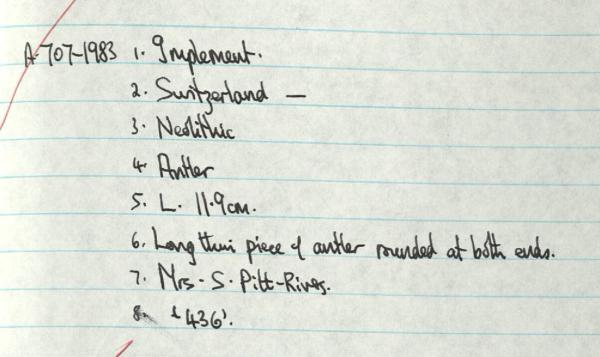 A·707-1983 1. Implement.
2. Switzerland —
3. Neolithic
4. Antler
5. L. 11.9cm.
6. Long thin piece of antler rounded at both ends.
7. Mrs. S. Pitt-Rivers.
8. '436'.